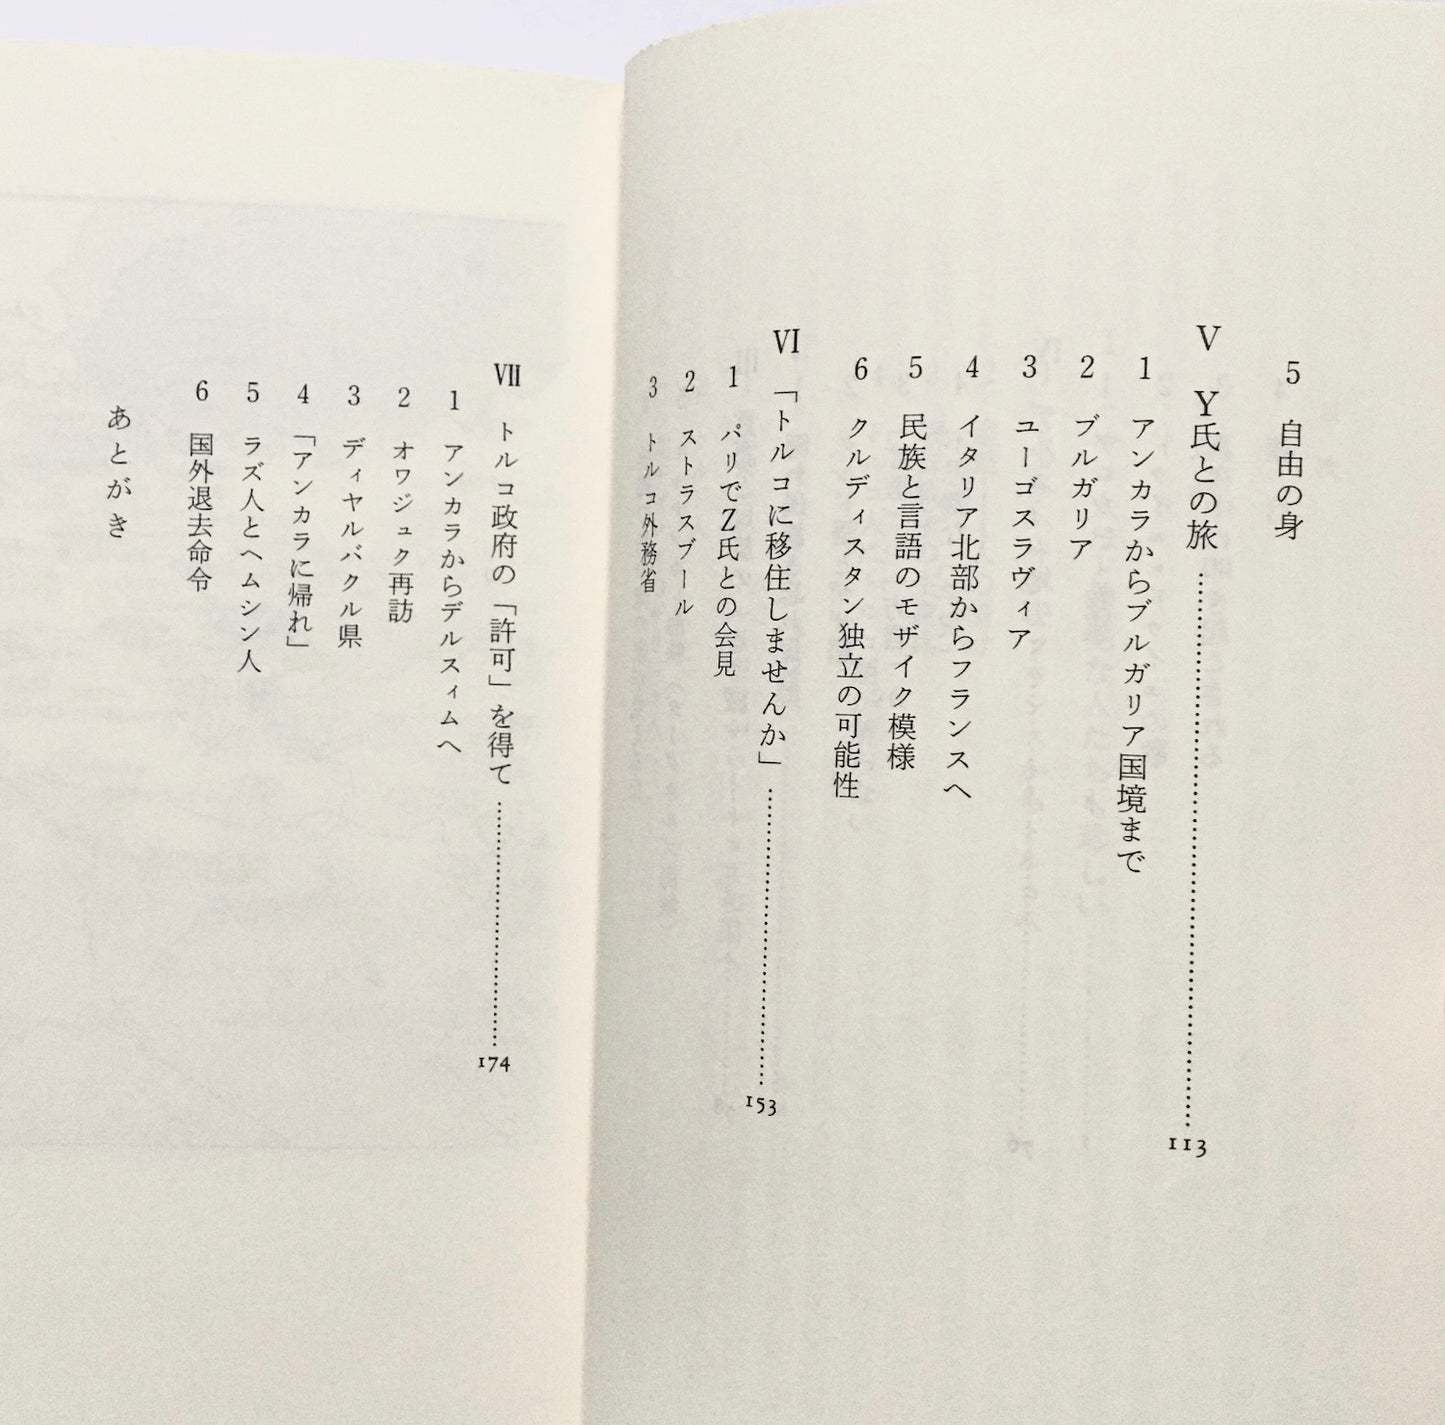 5 自由の身
V Y氏との旅……113
1 アンカラからブルガリア国境まで
2 ブルガリア
3 ユーゴスラヴィア
4 イタリア北部からフランスへ
5 民族と言語のモザイク模様
6 クルディスタン独立の可能性
VI 「トルコに移住しませんか」……153
1 パリでZ氏との会見
2 ストラスブール
3 トルコ外務省
VII トルコ政府の「許可」を得て……174
1 アンカラからデルスィムへ
2 オワジュク再訪
3 ディヤルバクル県
4 「アンカラに帰れ」
5 ラズ人とヘムシン人
6 国外退去命令
あとがき